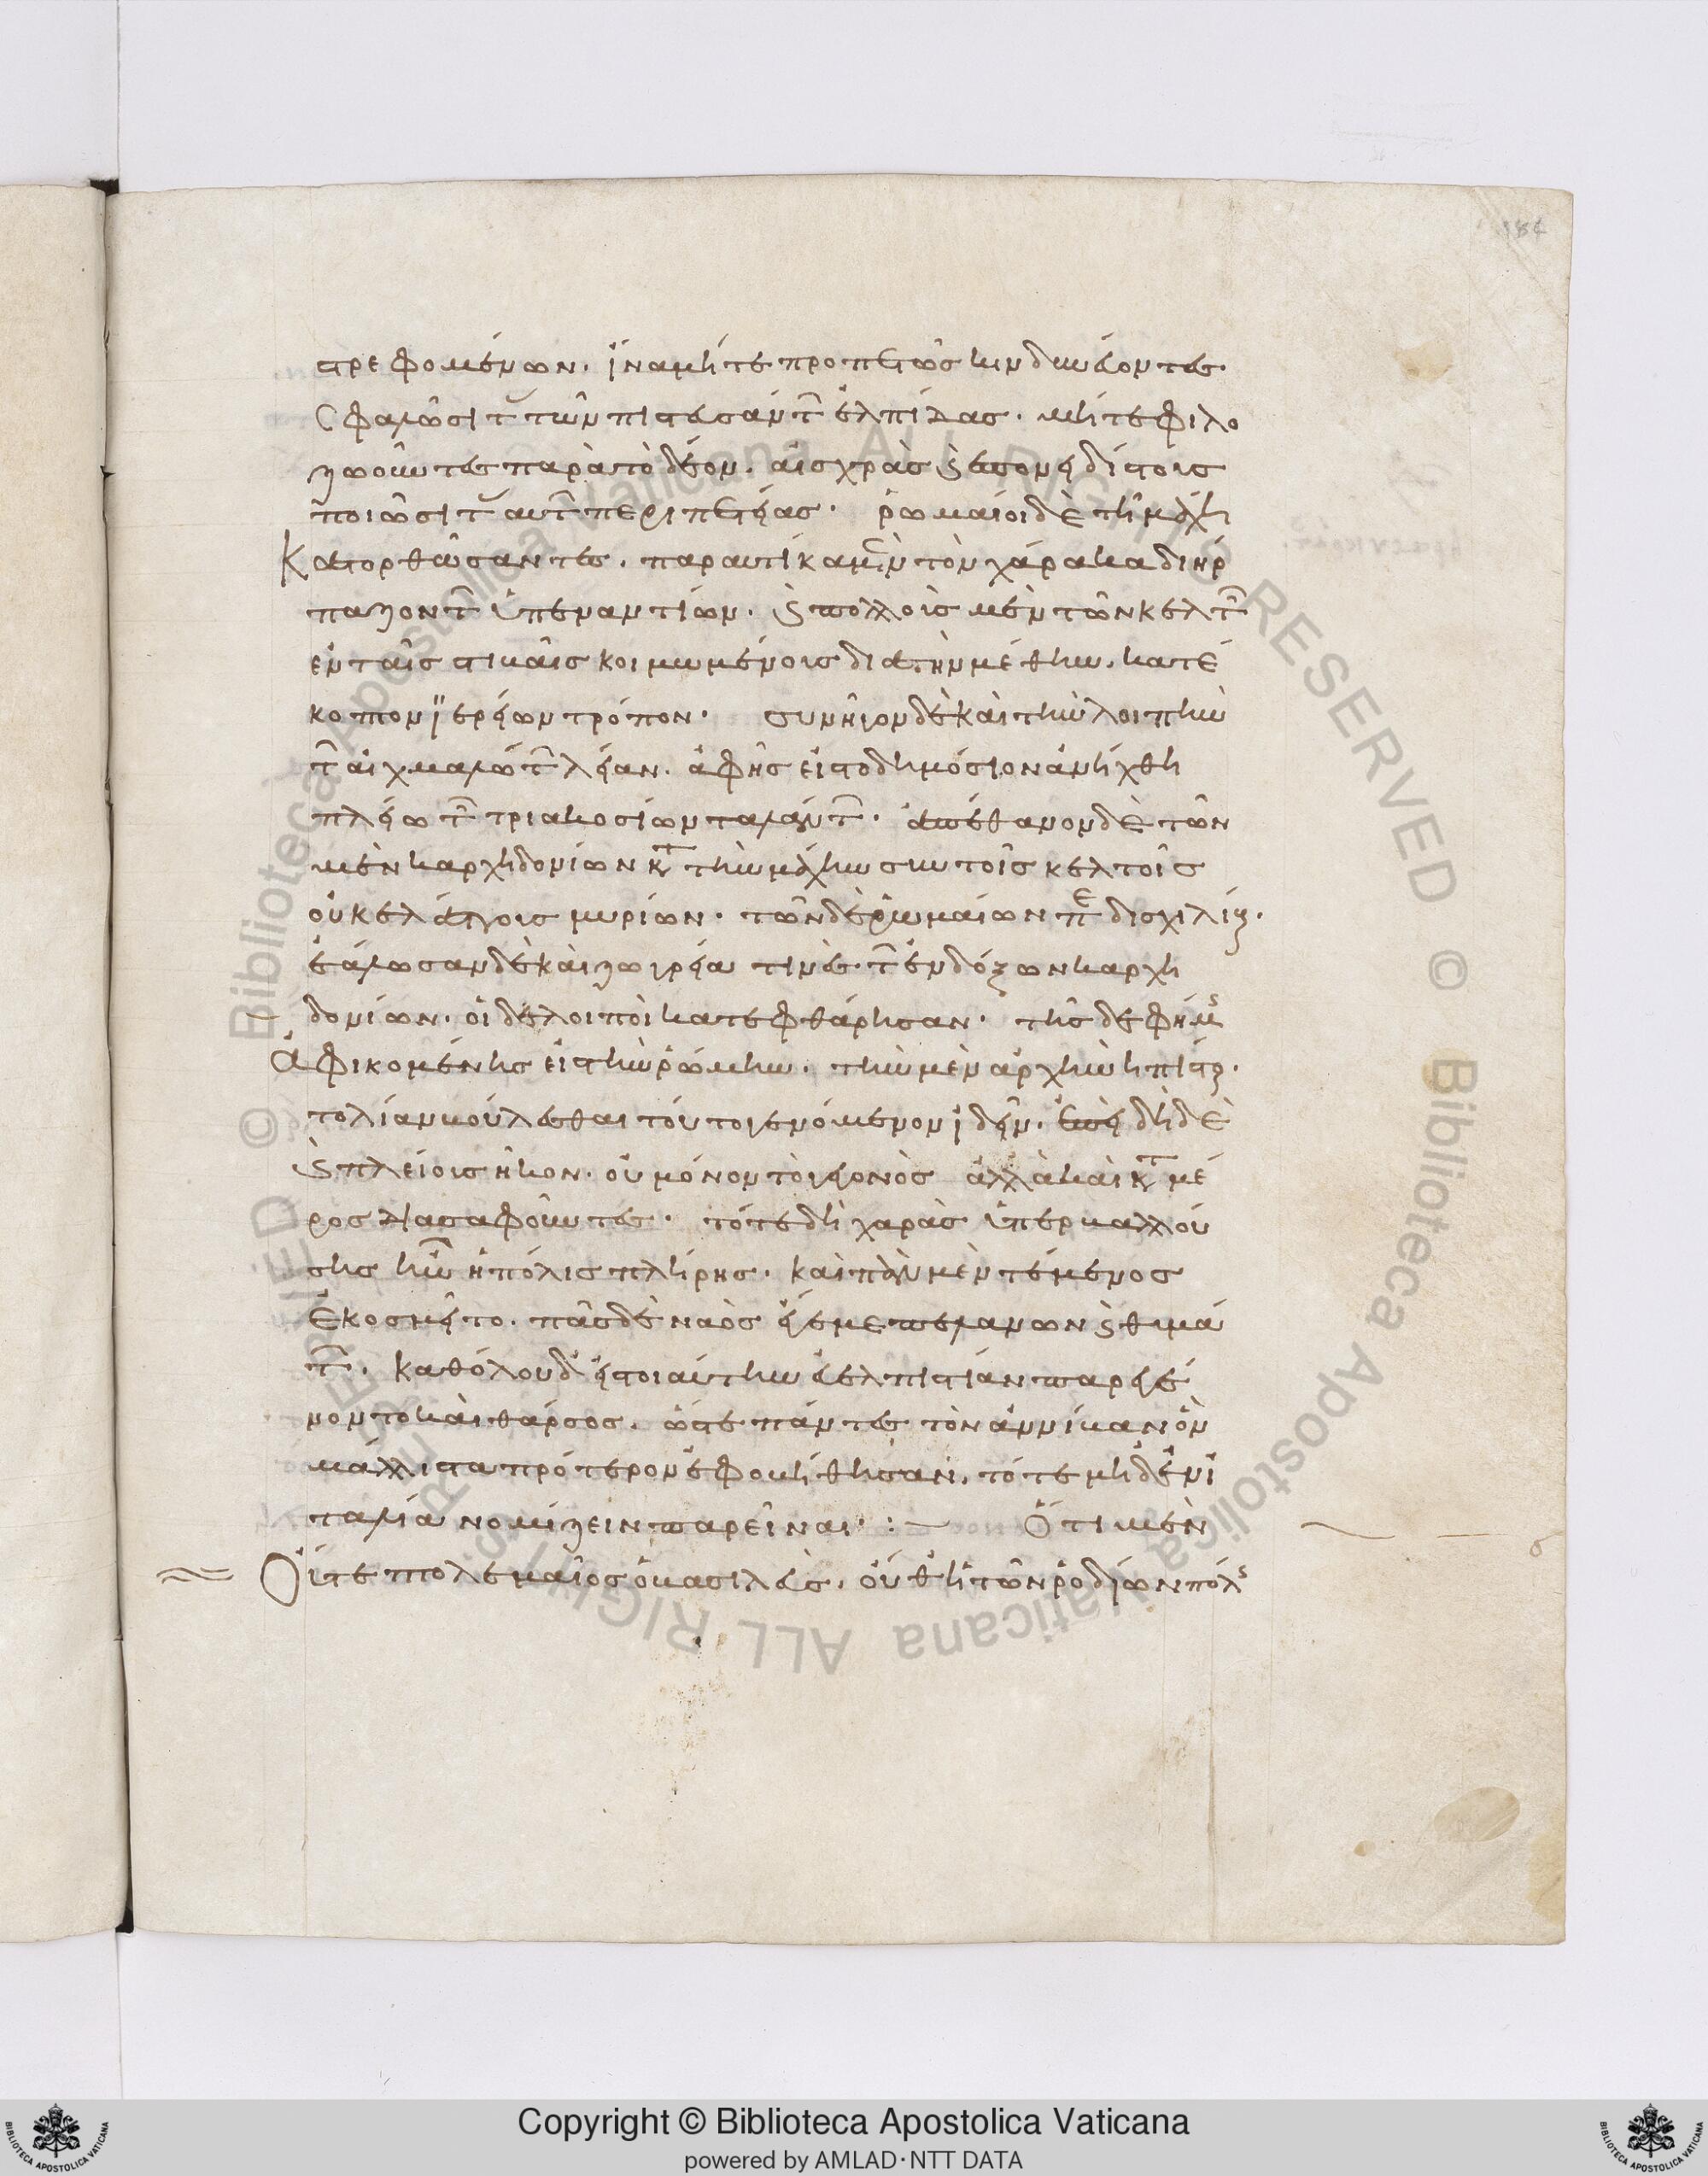 184
στρεφομένων. ἵνα μήτε προπετῶς κινδυνεύοντες
σφάλωσι τὰς τῶν πιστευσάντων ἐλπίδας. μήτε φιλο
ζωοῦντες παρὰ τὸ δέον. αἰσχρὰς καὶ ἐπονειδίστους
ποιῶσι τὰς αὑτῶν περιπετείας. ῥωμαῖοι δὲ τῇ μάχῃ
κατορθώσαντες. παραυτίκα μὲν τὸν χάρακα διήρ
παζον τῶν ὑπεναντίων. καὶ πολλοὺς μὲν τῶν κελτῶν
ἐν ταῖς στιβάσι κοιμωμένους διὰ τὴν μέθην. κατέ
κοπτον ἱερείων τρόπον. συνῆγον δὲ καὶ τὴν λοιπὴν
τῶν αἰχμαλώτων λείαν. ἀφ' ἧς εἰς τὸ δημόσιον ἀνήχθη
πλείω τῶν τριακοσίων ταλάντων. ἀπέθανον δὲ τῶν
μὲν καρχηδονίων κατὰ τὴν μάχην σὺν τοῖς κελτοῖς
οὐκ ἐλάττους μυρίων. τῶν δὲ ῥωμαίων περὶ δισχιλίους.
ἑάλωσαν δὲ καὶ ζωγρείᾳ τινὲς τῶν ἐνδόξων καρχη
δονίων. οἱ δὲ λοιποὶ κατεφθάρησαν. τῆς δὲ φήμης
ἀφικομένης εἰς τὴν ῥώμην. τὴν μὲν ἀρχὴν ἠπίστουν
τῷ λίαν βούλεσθαι τοῦτο γενόμενον ἰδεῖν. ἐπειδὴ δὲ
καὶ πλείους ἧκον. οὐ μόνον τὸ γεγονὸς ἀλλὰ καὶ κατὰ μέ
ρος διασαφοῦντες. τότε δὴ χαρᾶς ὑπερβαλλού
σης ἦν ἡ πόλις πλήρης. καὶ πᾶν μὲν τέμενος
ἐκοσμεῖτο. πᾶς δὲ ναὸς ἔγεμε πελάνων καὶ θυμά
των. καθόλου δ' εἰς τοιαύτην εὐελπιστίαν παρεγέ
νοντο καὶ θάρσος. ὥστε πάντας τὸν ἀννίβαν ὃν
μάλλιστα πρότερον ἐφοβήθησαν. τότε μηδ' ἐν ἰ
ταλίᾳ νομίζειν παρεῖναι. :— Ὅτι μὲν
Ὅ τε πτολεμαῖος ὁ βασιλεύς. οὔθ' ἡ τῶν ῥοδίων πόλις
Copyright © Biblioteca Apostolica Vaticana
powered by AMLAD·NTT DATA